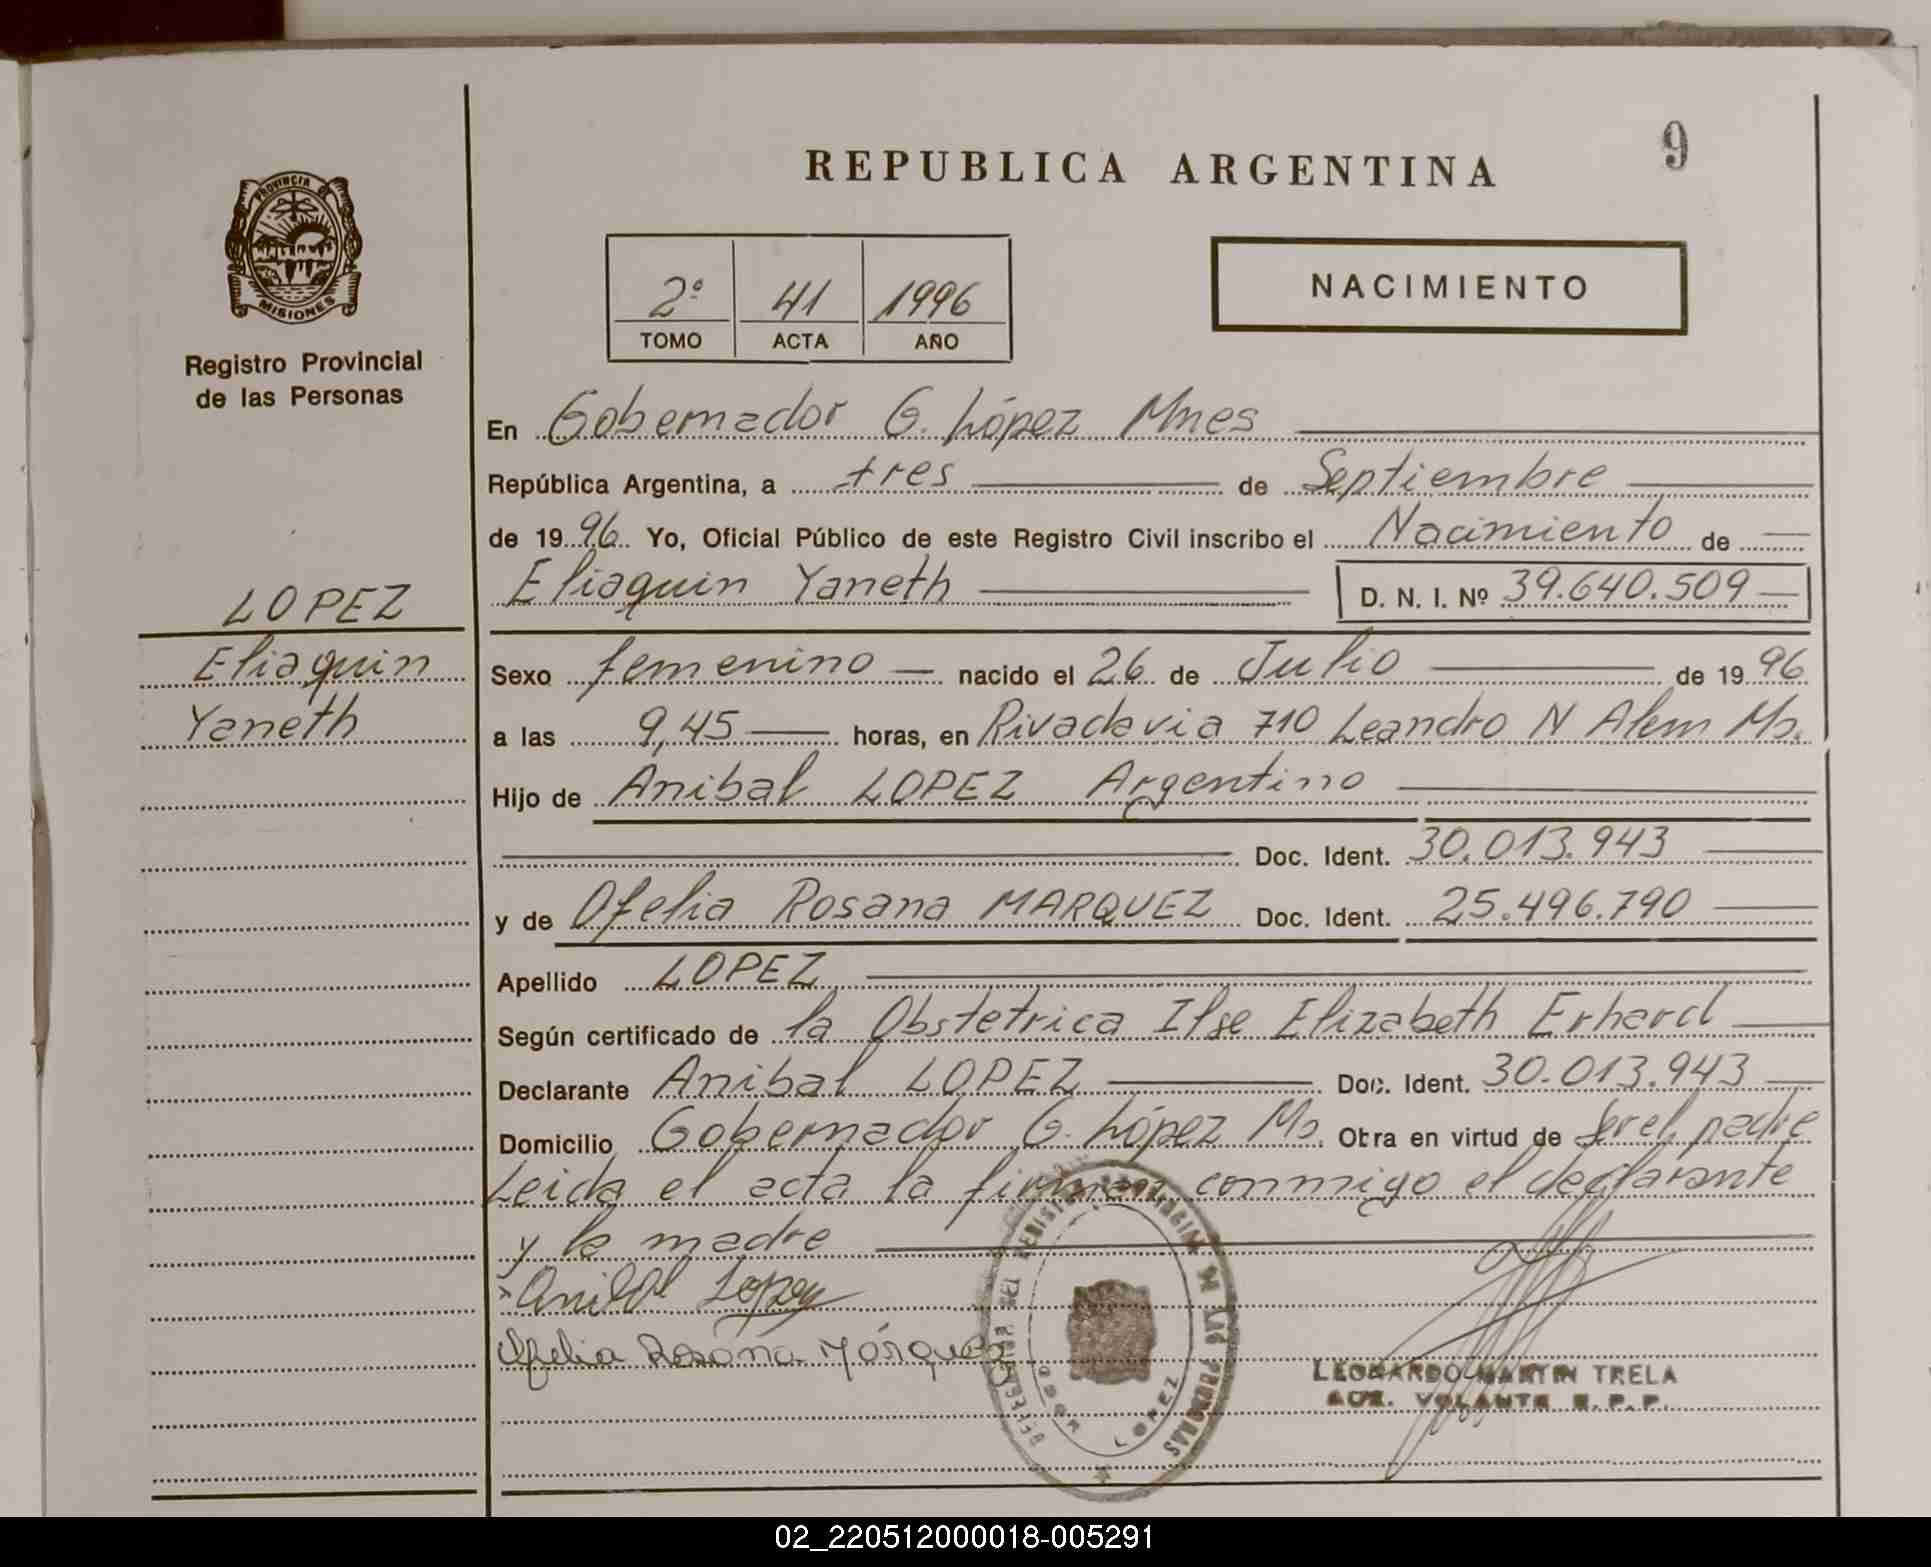 REPUBLICA ARGENTINA
9
PROVINCIA DE
MISIONES
Registro Provincial
de las Personas
2º 41 1996
TOMO ACTA AÑO
NACIMIENTO
En Gobernador G. López Mnes
República Argentina, a tres de Septiembre
de 1996 Yo, Oficial Público de este Registro Civil inscribo el Nacimiento de
Eliaquin Yaneth D. N. I. Nº 39.640.509
LOPEZ
Eliaquin
Yaneth
Sexo femenino nacido el 26 de Julio de 1996
a las 9,45 horas, en Rivadavia 710 Leandro N Alem Ms.
Hijo de Anibal LOPEZ Argentino
Doc. Ident. 30.013.943
y de Ofelia Rosana MARQUEZ Doc. Ident. 25.496.790
Apellido LOPEZ
Según certificado de la Obstetrica Ilse Elizabeth Erhard
Declarante Anibal LOPEZ Doc. Ident. 30.013.943
Domicilio Gobernador G. López Ms. Obra en virtud de ser el padre
Leida el acta la firman conmigo el declarante
y la madre
Anibal Lopez
Ofelia Rosana Márquez
REGISTRO PROVINCIAL DE LAS PERSONAS
GDOR LOPEZ
LEONARDO MARTIN TRELA
AUX. VOLANTE R.P.P.
02_220512000018-005291